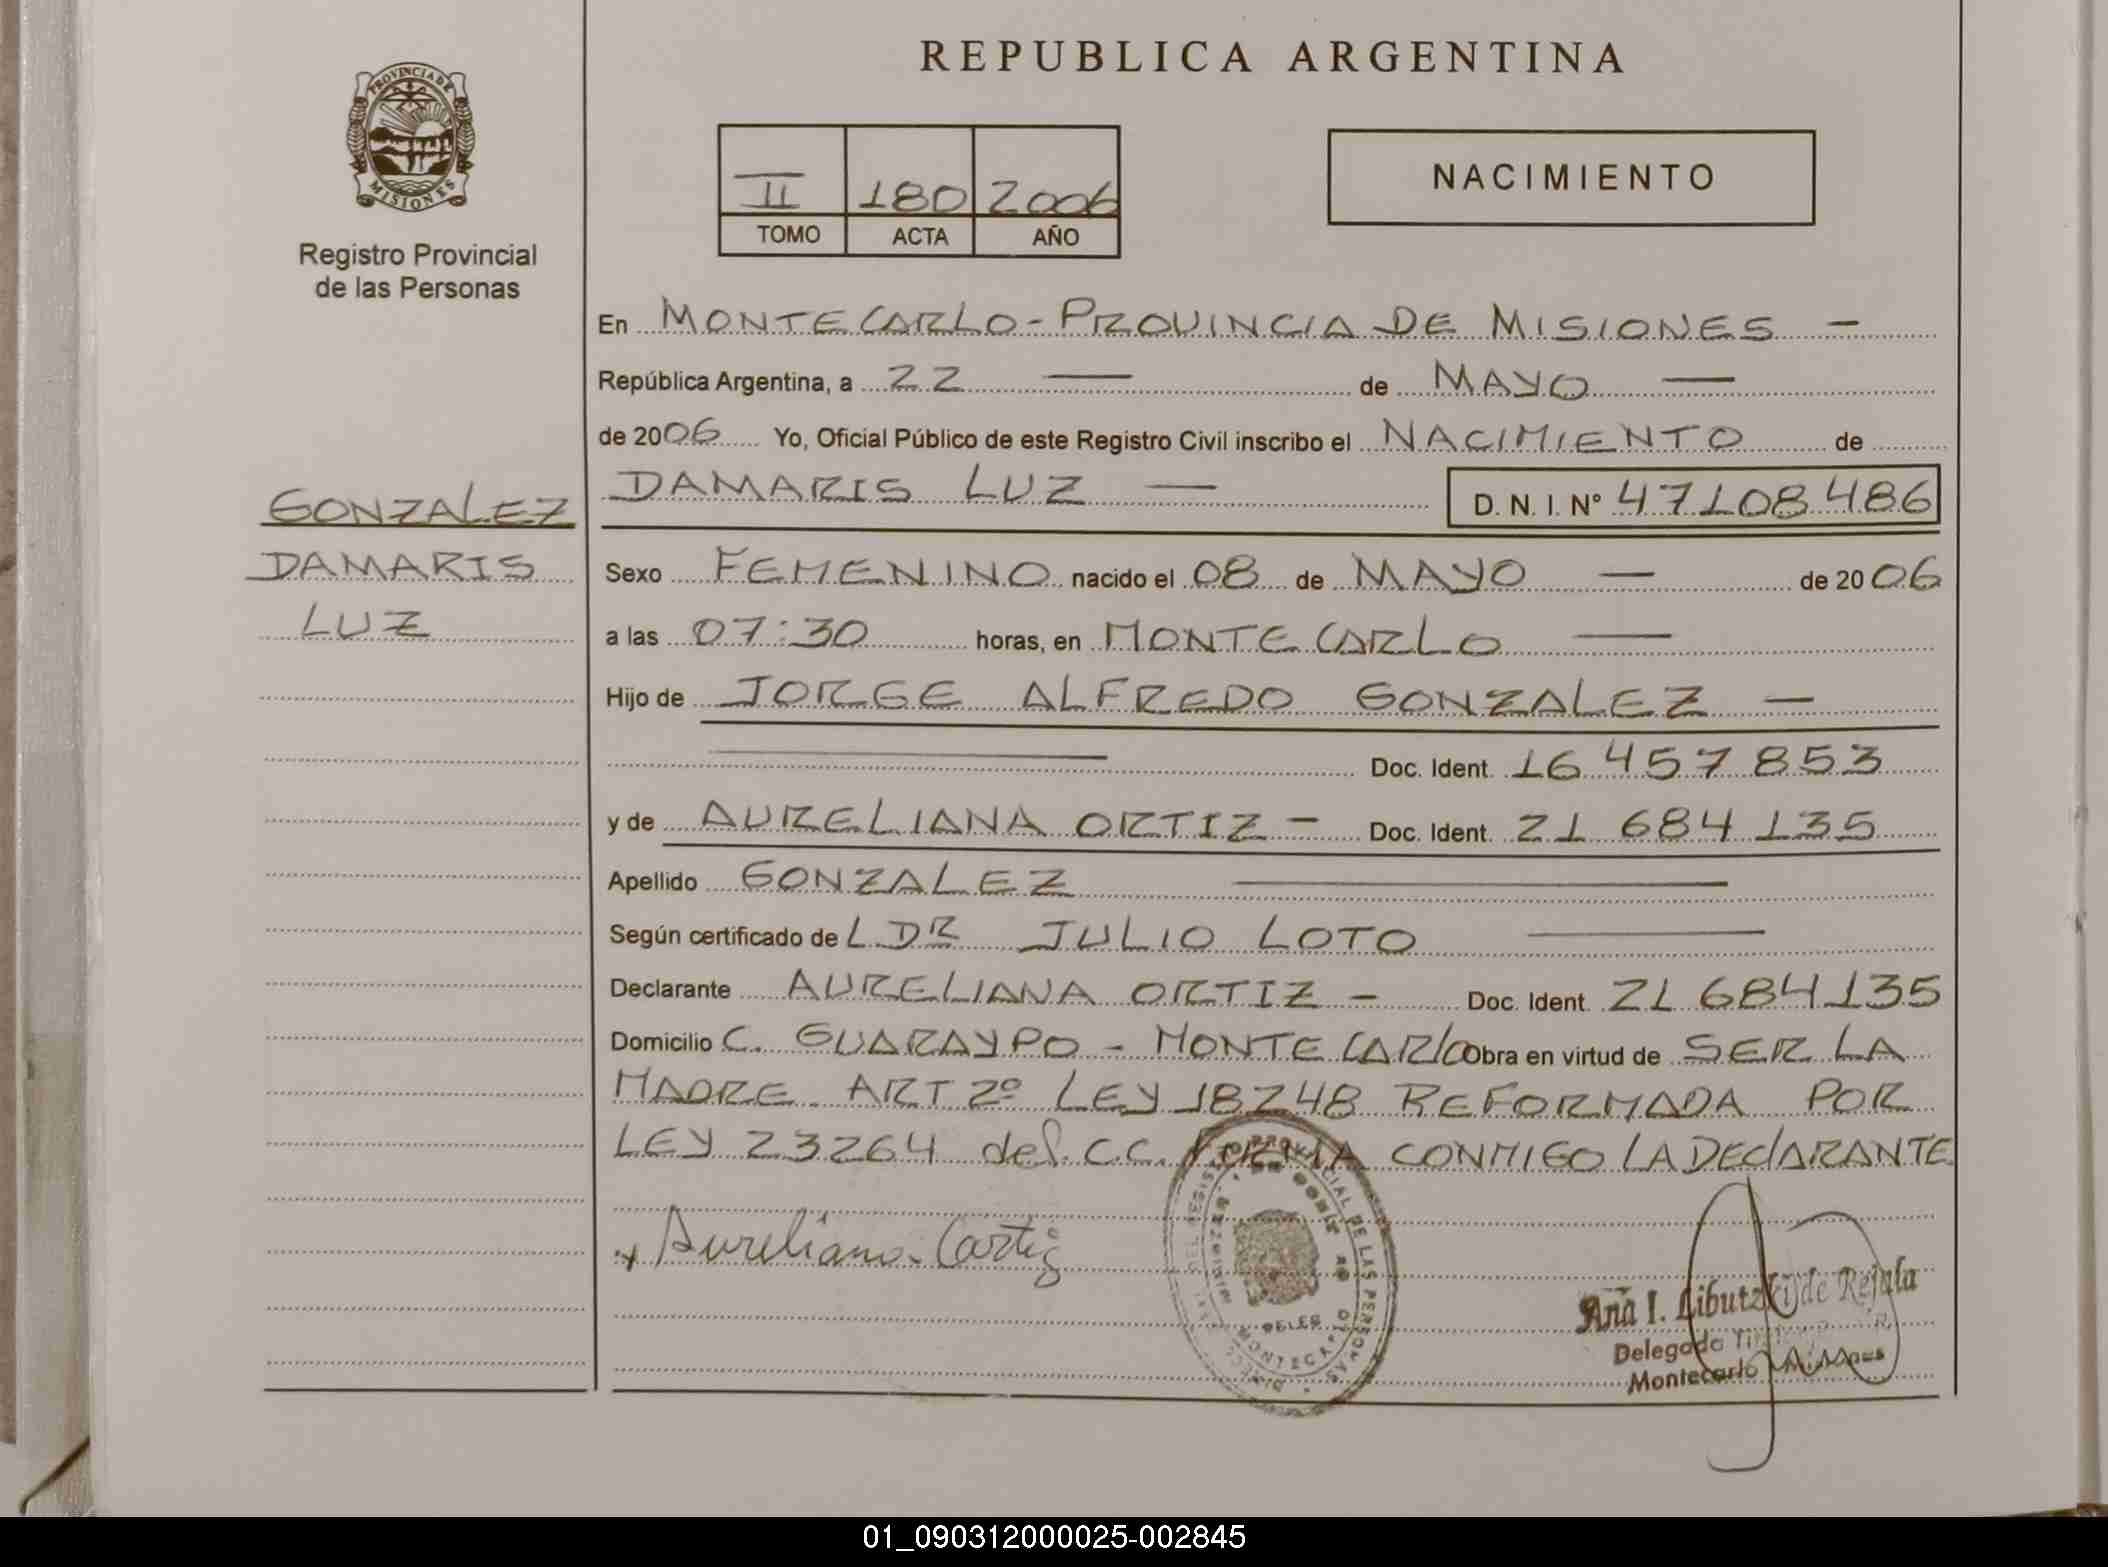 REPUBLICA ARGENTINA
PROVINCIA DE
MISIONES
Registro Provincial
de las Personas
II 180 2006
TOMO ACTA AÑO
NACIMIENTO
En MONTECARLO - PROVINCIA DE MISIONES -
República Argentina, a 22 — de MAYO —
de 2006 Yo, Oficial Público de este Registro Civil inscribo el NACIMIENTO de
GONZALEZ
DAMARIS
LUZ
DAMARIS LUZ — D. N. I. Nº 47108486
Sexo FEMENINO nacido el 08 de MAYO — de 2006
a las 07:30 horas, en MONTECARLO —
Hijo de JORGE ALFREDO GONZALEZ —
Doc. Ident. 16 457 853
y de AURELIANA ORTIZ - Doc. Ident. 21 684 135
Apellido GONZALEZ
Según certificado de L DR JULIO LOTO
Declarante AURELIANA ORTIZ - Doc. Ident. 21 684 135
Domicilio C. GUARAYPO - MONTECARLO Obra en virtud de SER LA
MADRE ART 2º LEY 18248 REFORMADA POR
LEY 23264 del C.C. FIRMA CONMIGO LA DECLARANTE
Aureliana
REGISTRO PROVINCIAL DE LAS PERSONAS
MONTECARLO
Ana I. Libutzki de Rejala
Delegado
Montecarlo Misiones
01_090312000025-002845